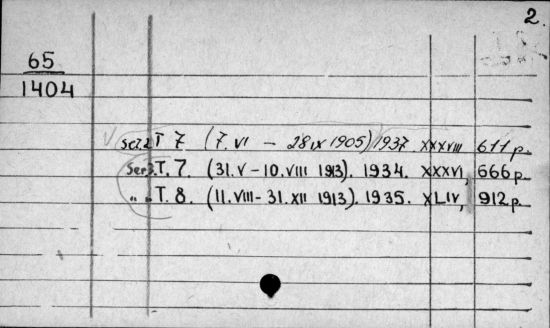 2.
65
1404
Ser.2 T 7. (7.VI – 28 IX 1905) 1937. XXXVIII 611 p.
Ser3. T. 7. (31.V – 10.VIII 1913). 1934. XXXVI, 666 p.
" " T. 8. (11.VIII – 31.XII 1913). 1935. XLIV, 912 p.